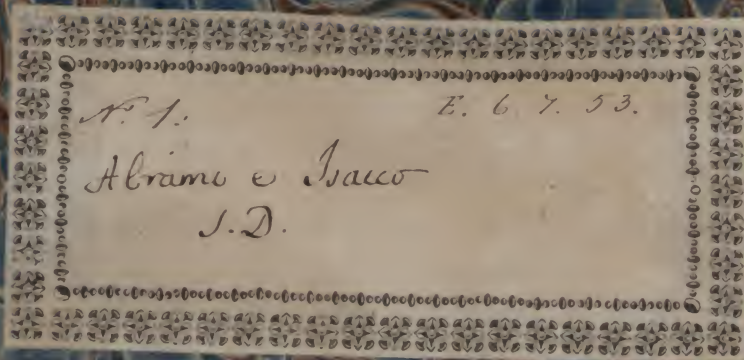 N.º 1: E. 6. 7. 53.
Abramo e Isacco
S.D.